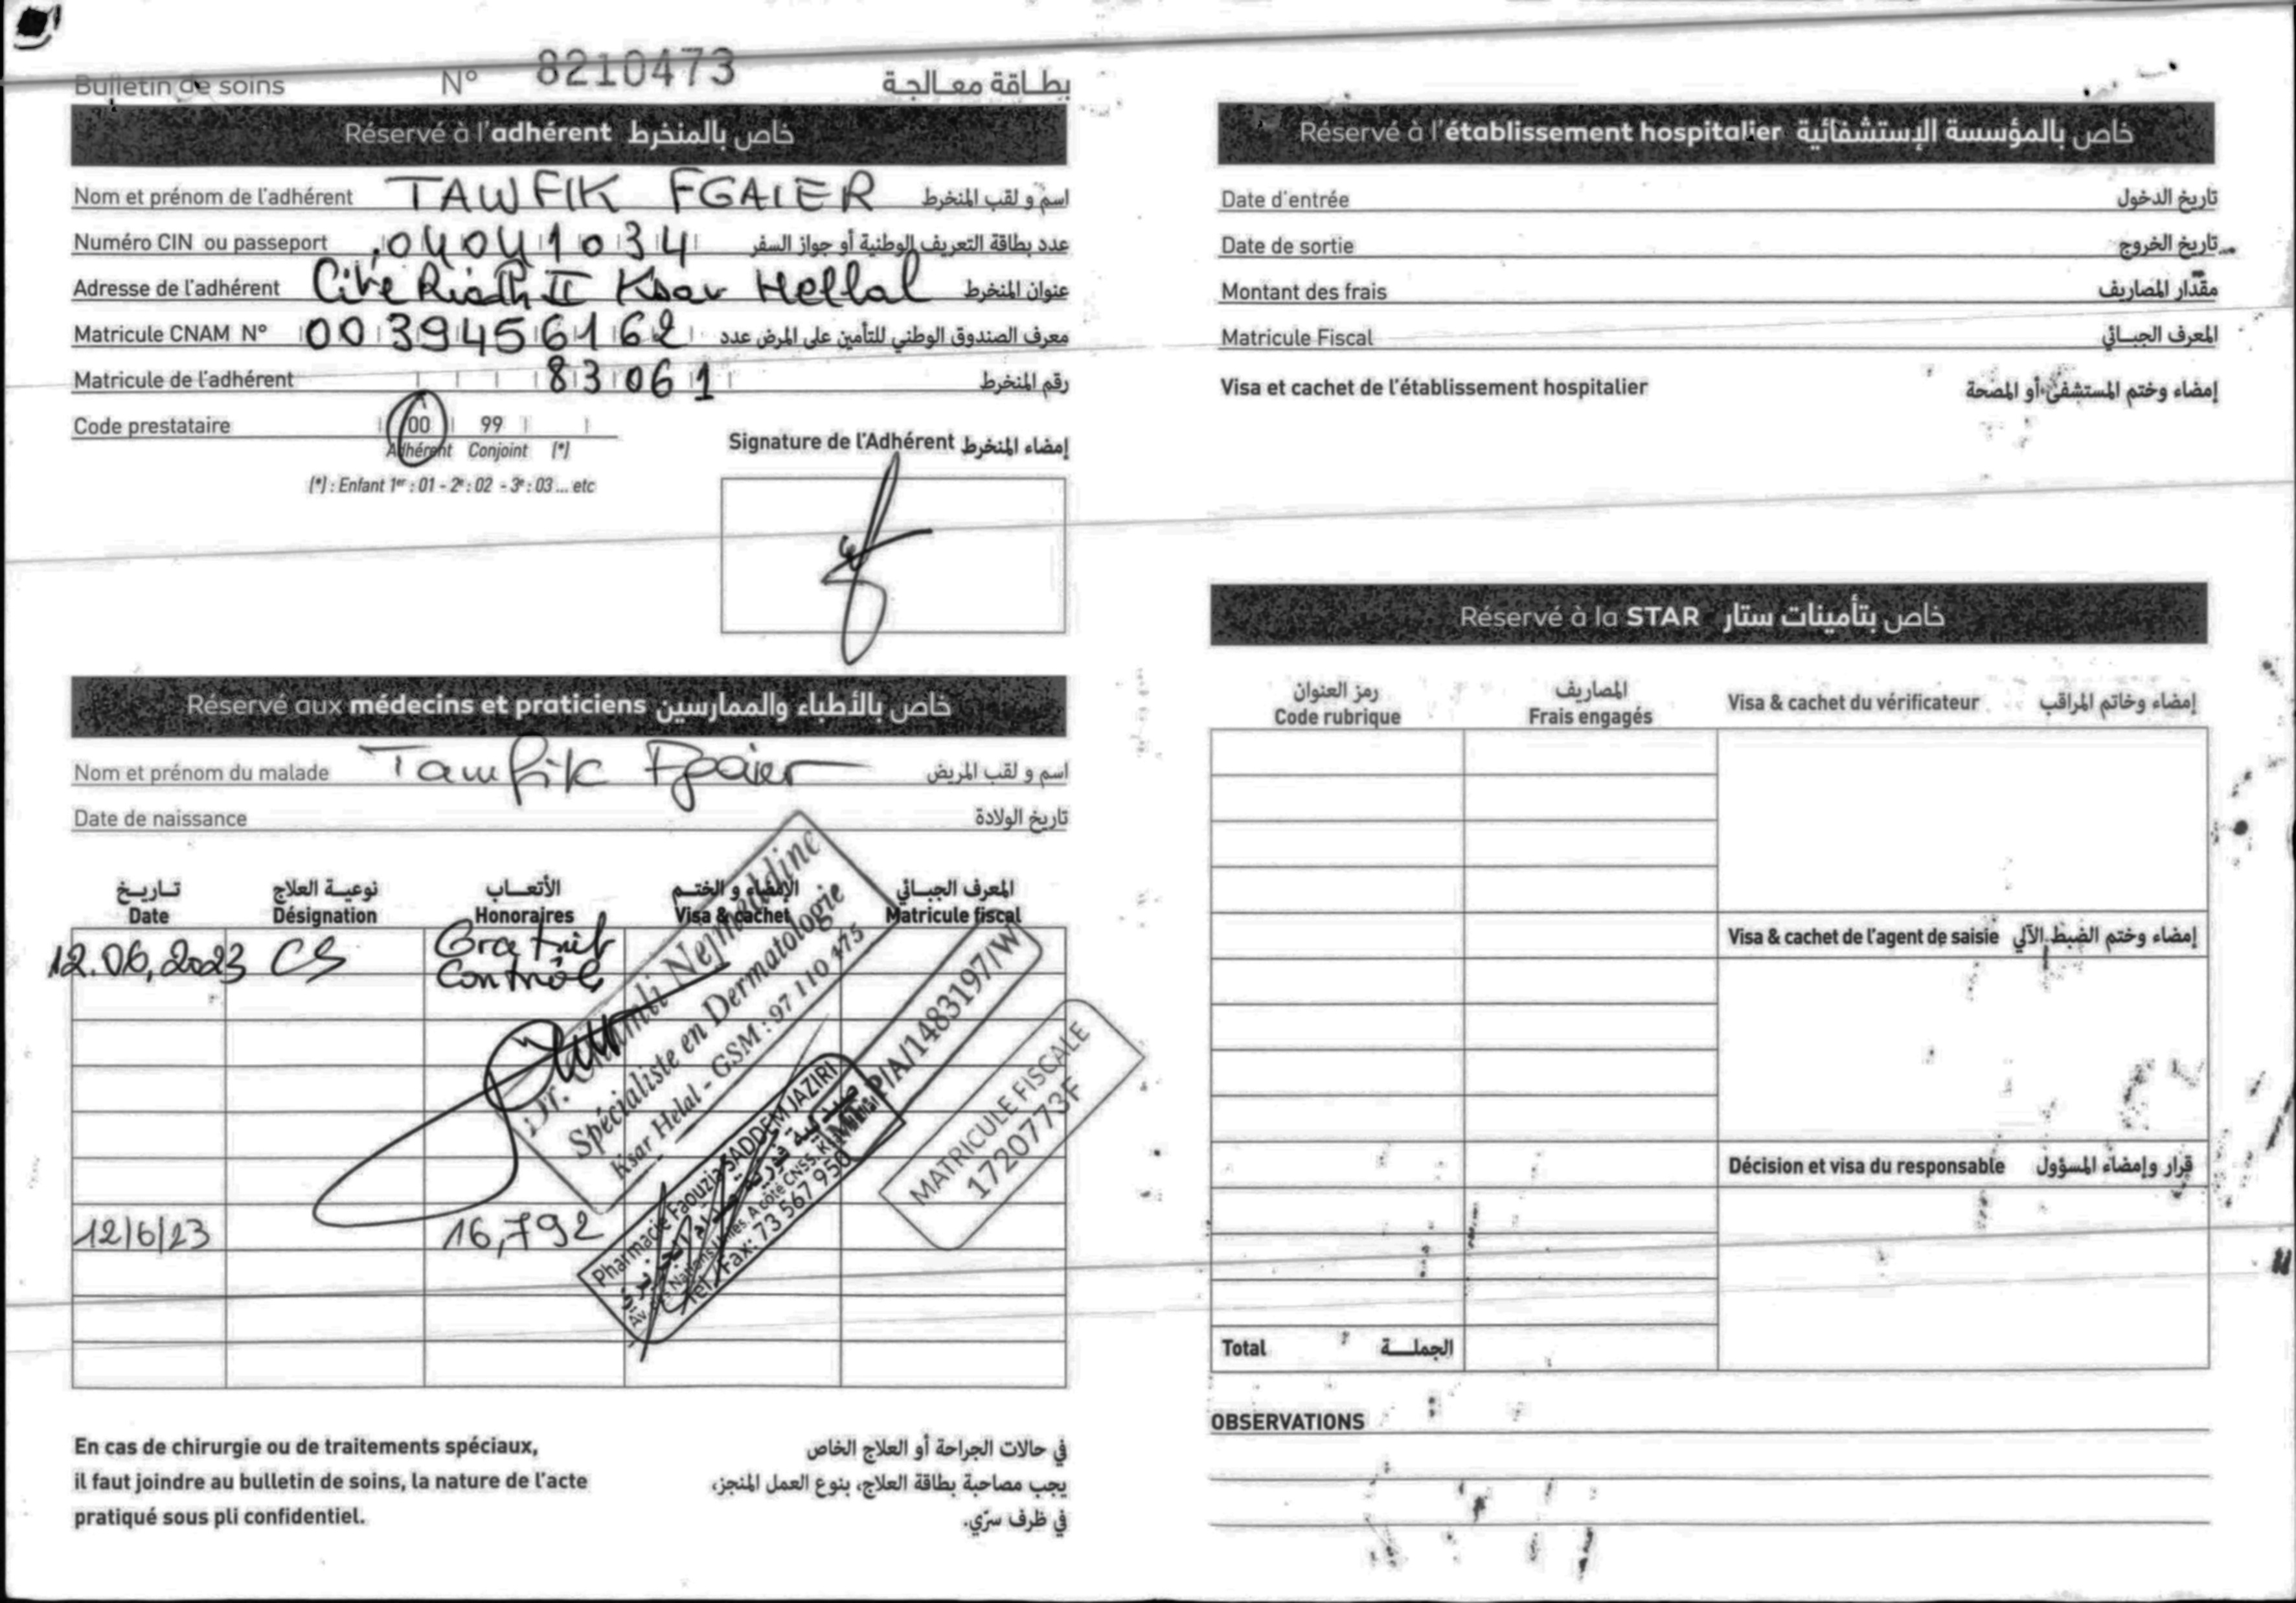 Bulletin de soins N° 8210473 بطاقة معالجة
Réservé à l'adhérent خاص بالمنخرط
Nom et prénom de l'adhérent TAWFIK FGAIER اسم و لقب المنخرط
Numéro CIN ou passeport 04041034 عدد بطاقة التعريف الوطنية أو جواز السفر
Adresse de l'adhérent Cité Riadh II Ksar Hellal عنوان المنخرط
Matricule CNAM N° 0039456162 معرف الصندوق الوطني للتأمين على المرض عدد
Matricule de l'adhérent 83061 رقم المنخرط
Code prestataire 00 99
Adhérent Conjoint (*)
(*) : Enfant 1er : 01 - 2e : 02 - 3e : 03 ... etc
Signature de l'Adhérent إمضاء المنخرط
Réservé aux médecins et praticiens خاص بالأطباء والممارسين
Nom et prénom du malade Tawfik Fgaier اسم و لقب المريض
Date de naissance تاريخ الولادة
تاريخ نوعية العلاج الأتعاب الإمضاء و الختم المعرف الجبائي
Date Désignation Honoraires Visa & cachet Matricule fiscal
12.06.2023 CS Gratuit
Contrôle
Nejmeddine
Spécialiste en Dermatologie
Ksar Helal - GSM : 97 110 175
P/A/1483197/W
MATRICULE FISCALE
1720773F
12/6/23 16,792
Pharmacie Faouzia SADDEM JAZIRI
Av. des Nations Unies. A côté CNSS.
Tel / Fax: 73 567 950
En cas de chirurgie ou de traitements spéciaux,
il faut joindre au bulletin de soins, la nature de l'acte
pratiqué sous pli confidentiel.
في حالات الجراحة أو العلاج الخاص
يجب مصاحبة بطاقة العلاج، بنوع العمل المنجز،
في ظرف سرّي.
Réservé à l'établissement hospitalier خاص بالمؤسسة الإستشفائية
Date d'entrée تاريخ الدخول
Date de sortie تاريخ الخروج
Montant des frais مقدار المصاريف
Matricule Fiscal المعرف الجبائي
Visa et cachet de l'établissement hospitalier إمضاء وختم المستشفى أو المصحة
Réservé à la STAR خاص بتأمينات ستار
رمز العنوان المصاريف
Code rubrique Frais engagés Visa & cachet du vérificateur إمضاء وخاتم المراقب
Visa & cachet de l'agent de saisie إمضاء وختم الضبط الآلي
Décision et visa du responsable قرار وإمضاء المسؤول
Total الجملة
OBSERVATIONS